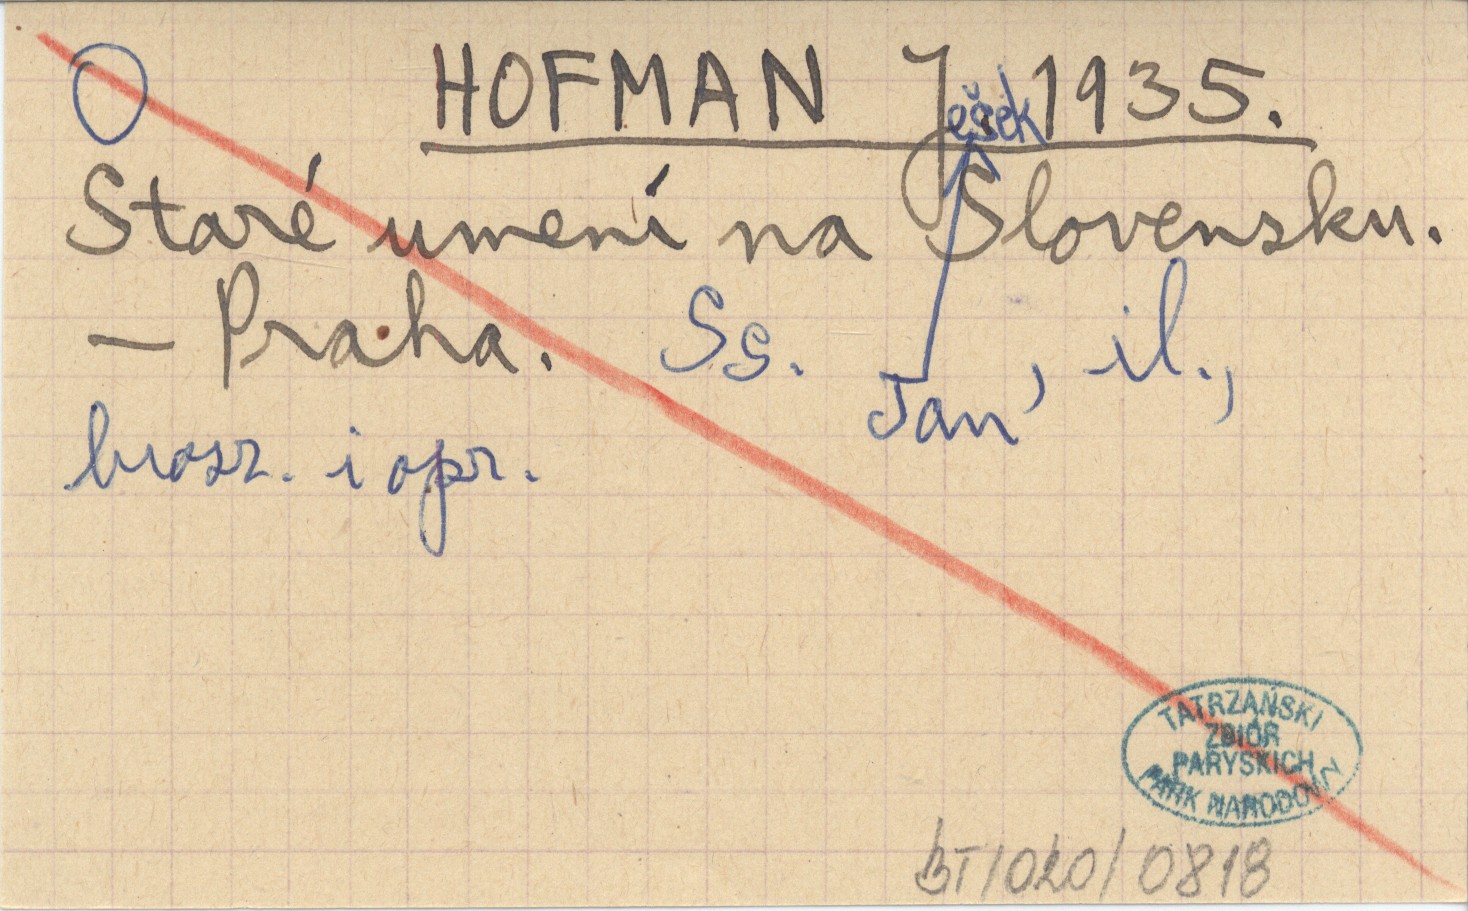 HOFMAN Ješek 1935.
Staré umení na Slovensku.
— Praha. Ss. , il.,
Jan
brosz. i opr.
TATRZAŃSKI
ZBIÓR
PARYSKICH
PARK NARODOWY
BT/020/0818